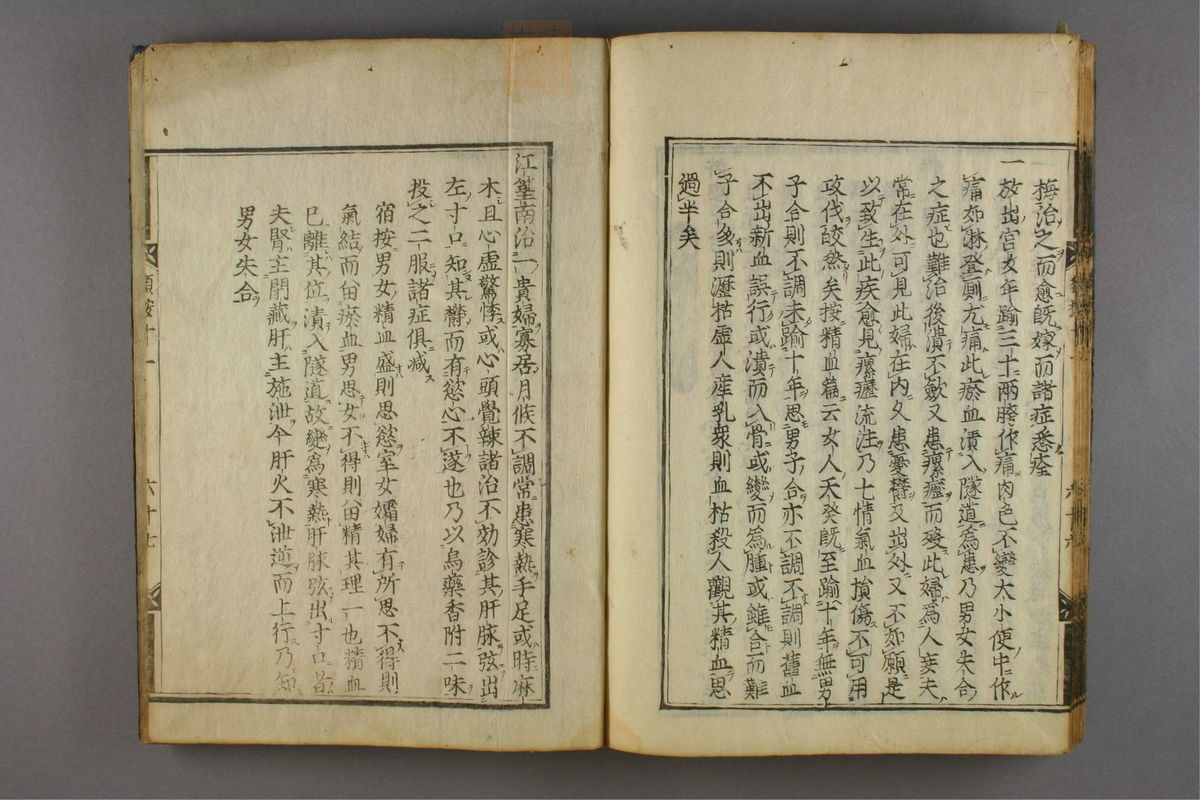 梅治之而愈既嫁而諸症悉痊
一放出宫女年踰三十兩胯作痛肉色不變大小便中作
痛如淋登厠尤痛此瘀血漬入隧道爲患乃男女失合
之症也難治後潰不斂又患瘰癧而殁此婦爲人妾夫
常在外可見此婦在内久患憂欝及出外又不如願是
以致生此疾愈見瘰癧流注乃七情氣血損傷不可用
攻伐皎然矣按精血篇云女人天癸既至踰十年無男
子合則不調未踰十年思男子合亦不調不調則舊血
不出新血誤行或漬而入骨或變而爲腫或雖合而難
子合多則瀝枯虚人産乳衆則血枯殺人觀其精血思
過半矣
江篁南治一貴婦寡居月候不調常患寒熱手足或時麻
木且心虚驚悸或心頭覺辣諸治不効診其肝脉弦出
左寸口知其欝而有慾心不遂也乃以烏藥香附二味
投之二服諸症俱减
宿按男女精血盛則思慾室女孀婦有所思不得則
氣結而留瘀血男思女不得則留精其理一也精血
已離其位漬入隧道故變爲寒熱肝脉弦出寸口者
夫腎主閉藏肝主施泄今肝火不泄逆而上行乃知
男女失合
類按十一
六十七